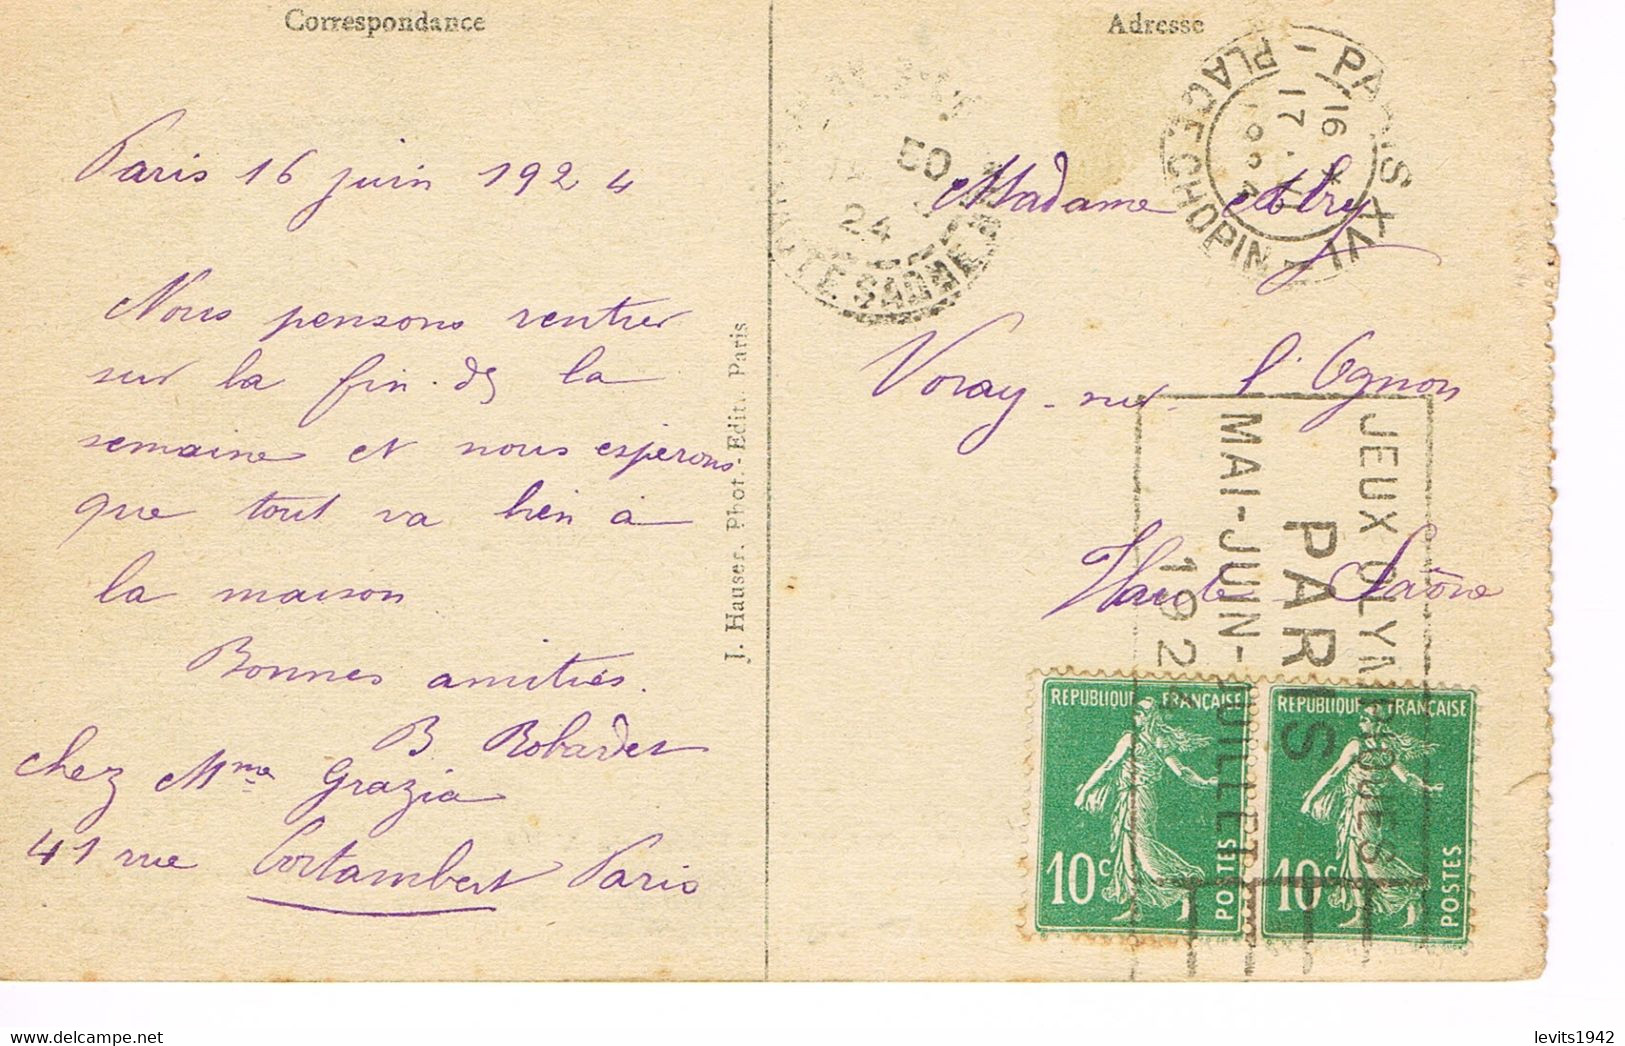 Correspondance
Paris 16 juin 1924
Nous pensons rentrer
sur la fin de la
semaine et nous espérons
que tout va bien à
la maison
Bonnes amitiés.
B Robardet
chez Mme Grazia
41 rue Cortambert Paris
J. Hauser. Phot.-Edit. Paris
Adresse
Madame
Voray-sur-l'Ognon
Haute Saône
PARIS XVI
PLACE CHOPIN
16
17
24
HTE SAONE
JEUX OLYMPIQUES
PARIS
MAI-JUIN-JUILLET
192
REPUBLIQUE FRANÇAISE
10c
POSTES
REPUBLIQUE FRANÇAISE
10c
POSTES
levits1942